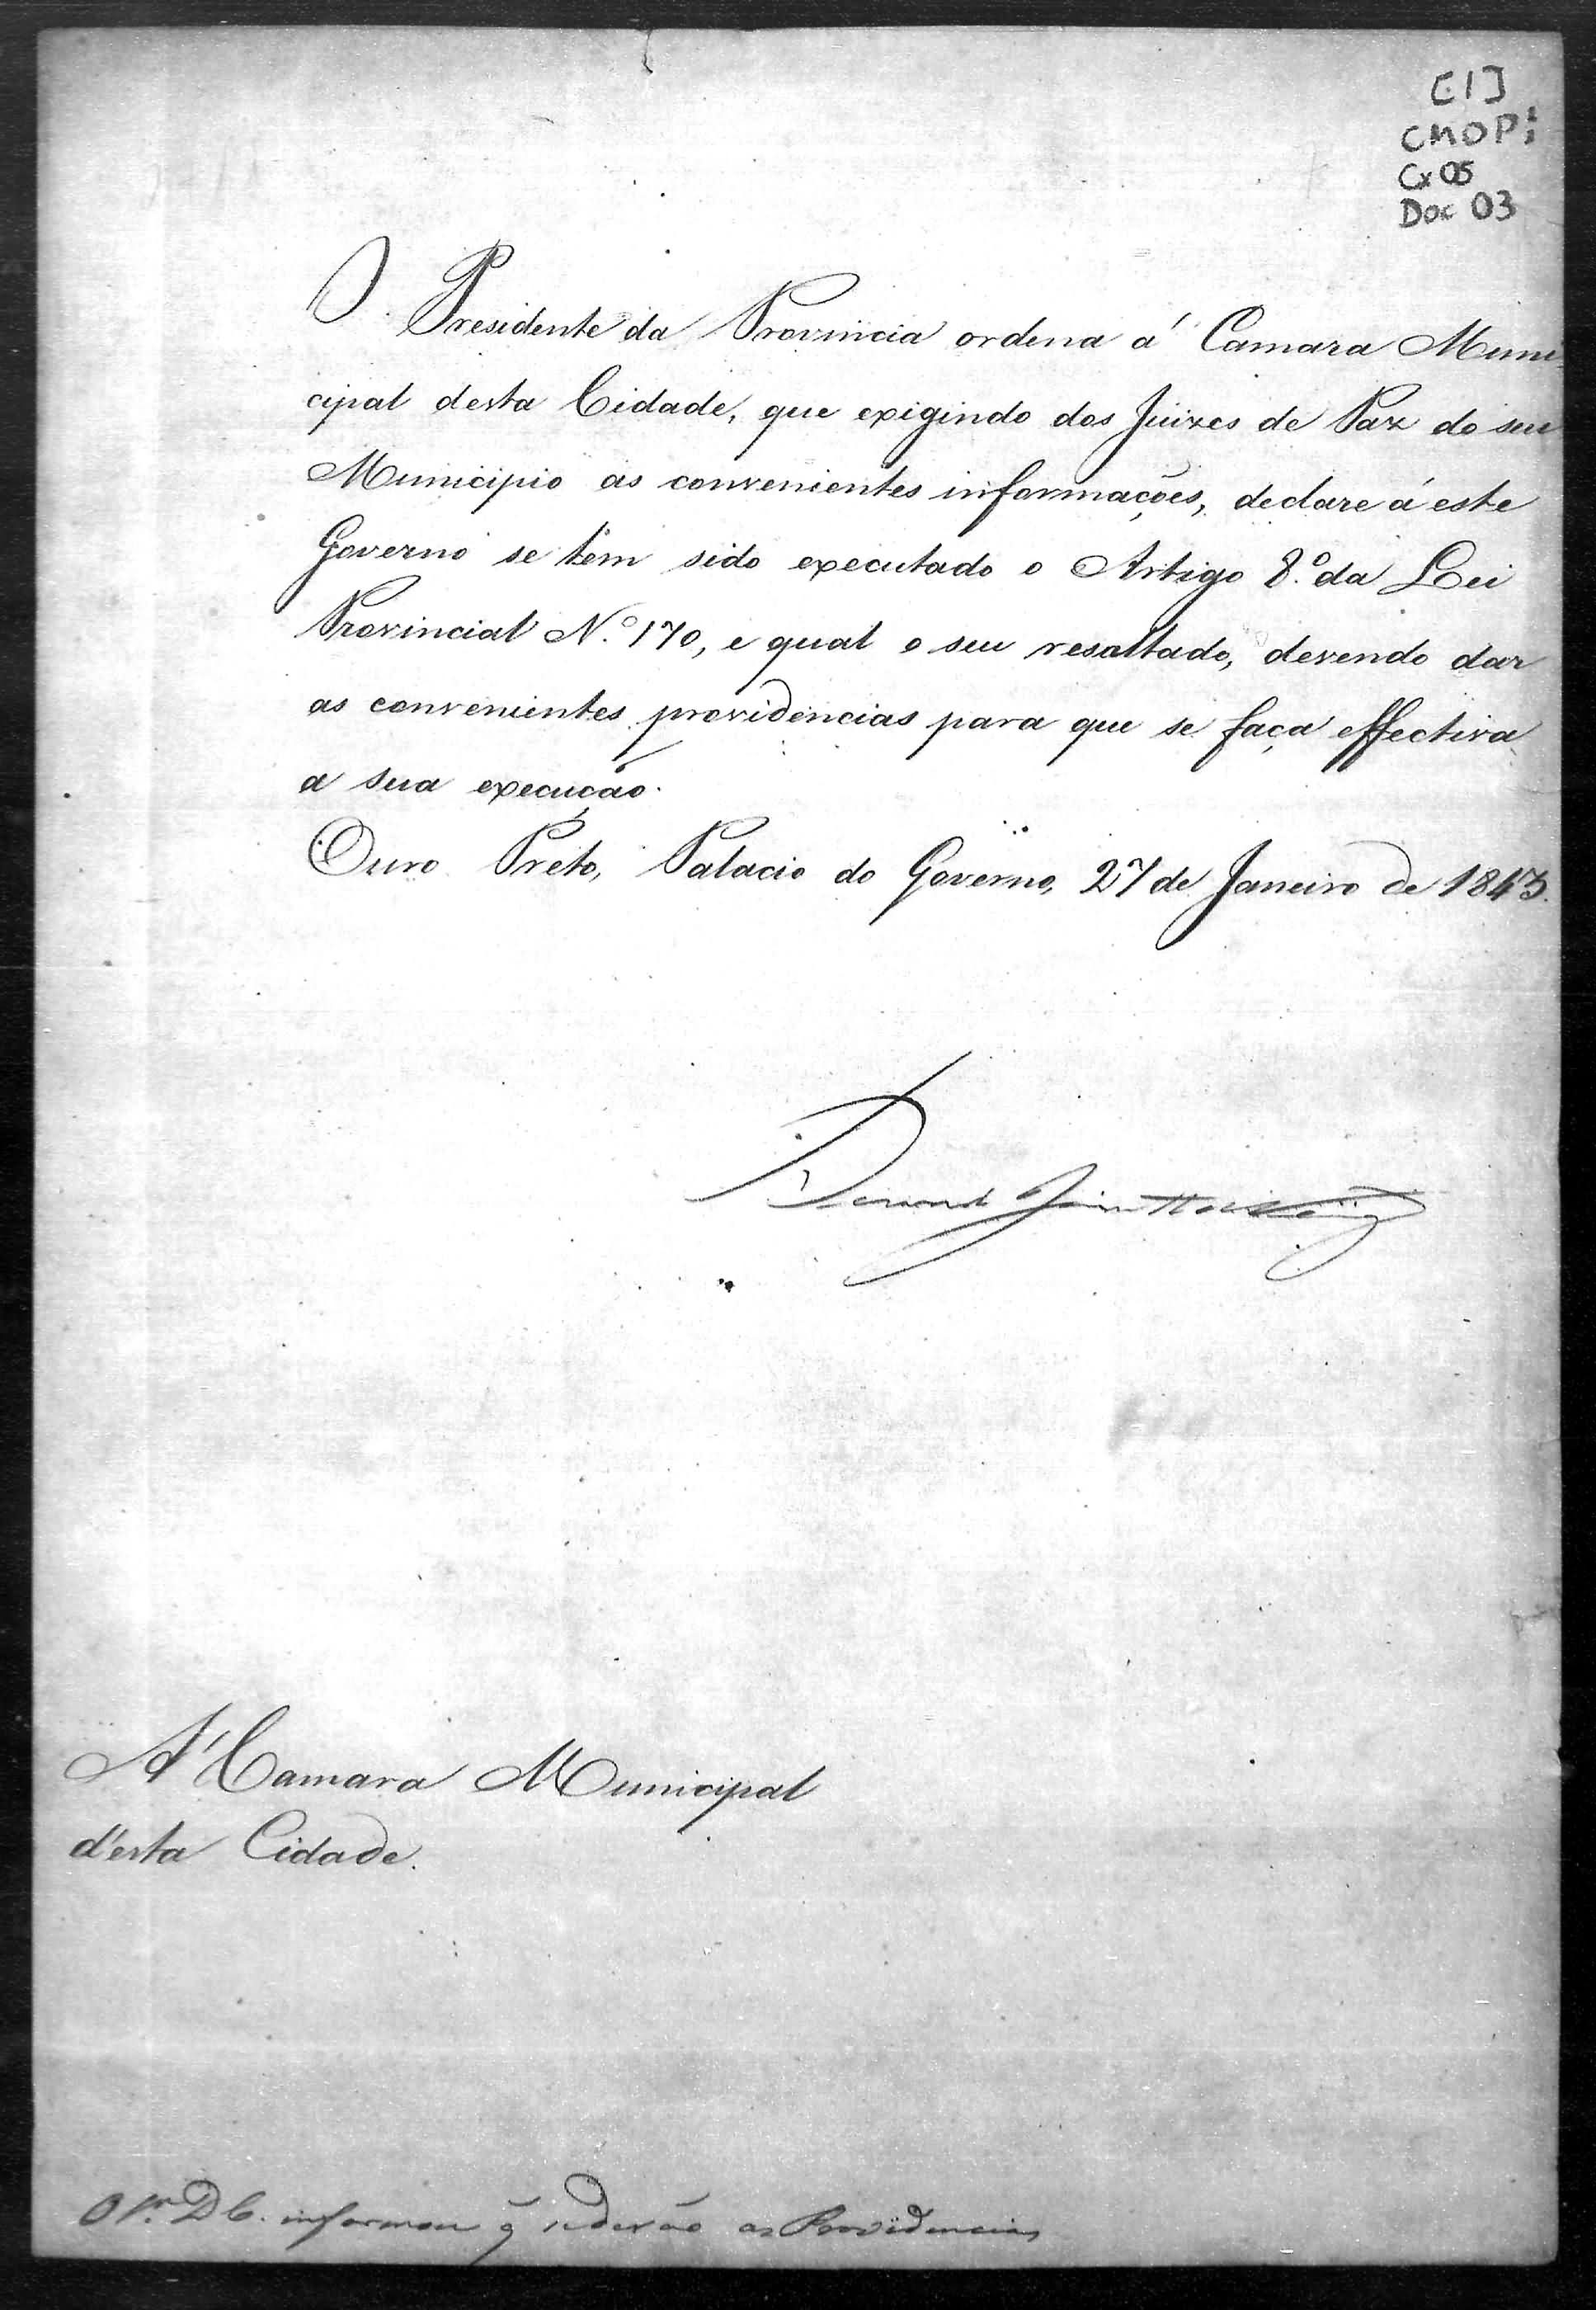 [1]
CMOPi
Cx 05
Doc 03
O Presidente da Provincia ordena á Camara Muni
cipal desta Cidade, que exigindo dos Juizes de Paz do seu
Municipio as convenientes informações, declare á este
Governo se tem sido executado o Artigo 8.º da Lei
Provincial N.º 170, e qual o seu resultado, devendo dar
as convenientes providencias para que se faça effectiva
a sua execução.
Ouro Preto, Palacio do Governo, 27 de Janeiro de 1843.
A' Camara Municipal
d'esta Cidade.
informou q̃ se derão as Providencias